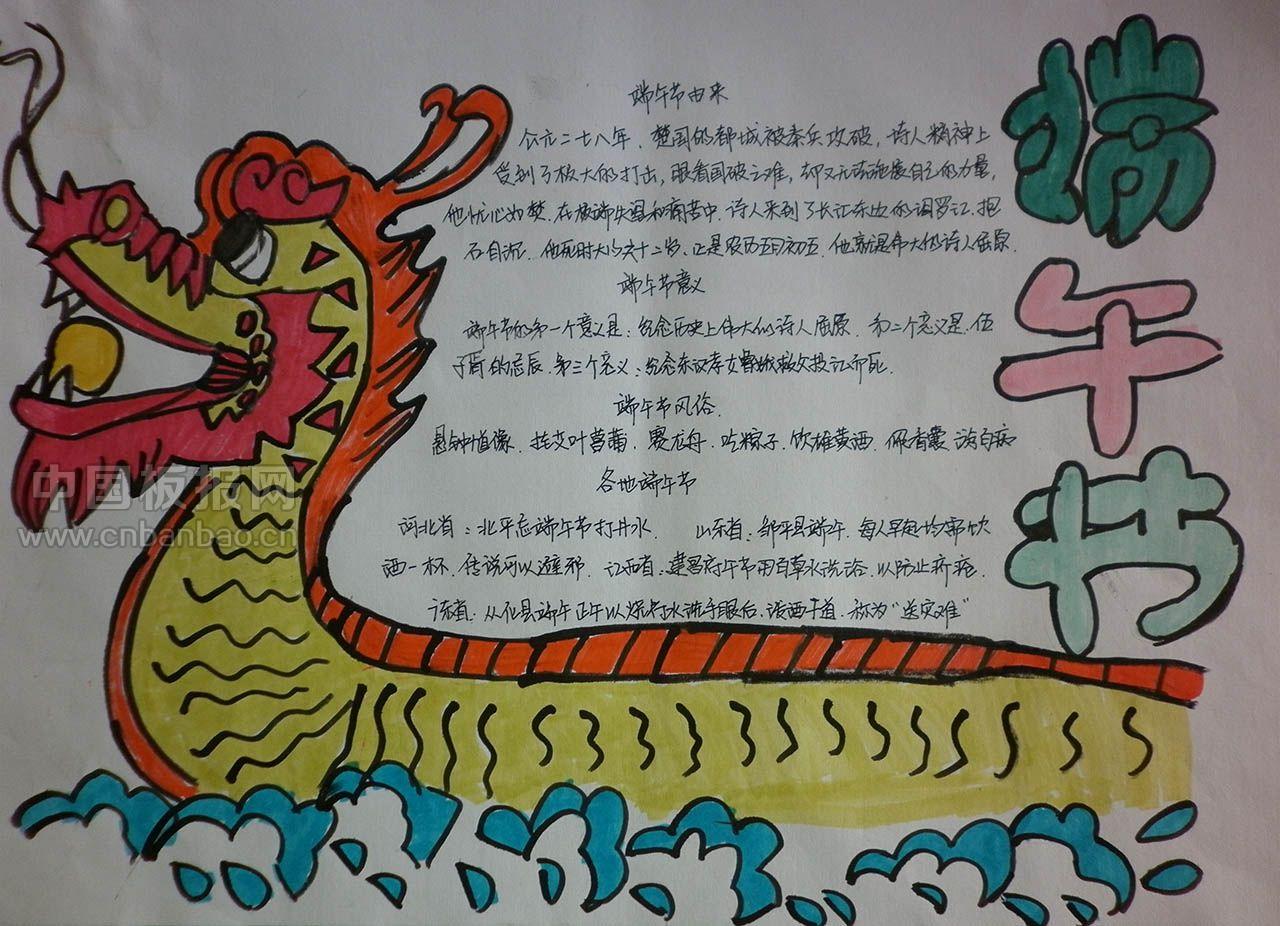 端午节
端午节由来
公元二七八年，楚国的都城被秦兵攻破，诗人精神上
受到了极大的打击，眼看国破之难，却又无法施展自己的力量，
他忧心如焚．在极端失望和痛苦中．诗人来到了长江东边的汨罗江．抱
石自沉．他死时大约六十二岁、正是农历五月初五．他就是伟大的诗人屈原．
端午节意义
端午节的第一个意义是：纪念历史上伟大的诗人屈原．和二个意义是．伍
子胥的忌辰．第三个意义：纪念东汉孝女曹娥救父投江而死．
端午节风俗．
悬钟馗像．挂艾叶菖蒲．赛龙舟．吃粽子．饮雄黄酒．佩香囊．游百病
各地端午节
河北省：北平忌端午节打井水 山东省：邹平县端午．每人早起均需饮
酒一杯．传说可以避邪．江西省：建昌府午节用百草水洗浴．以防止疥疮．
从化县端午正午以烧符水洗手眼后．泼洒于道．称为“送灾难”
中国板报网
www.cnbanbao.cn